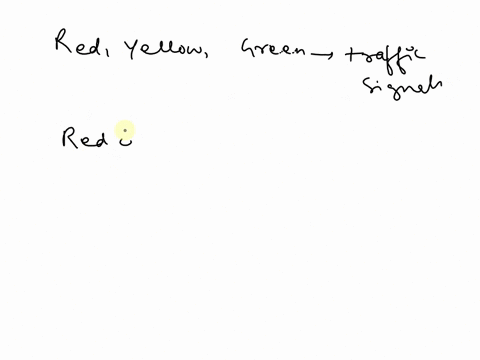 Red, Yellow, Green → traffic
signals
Red